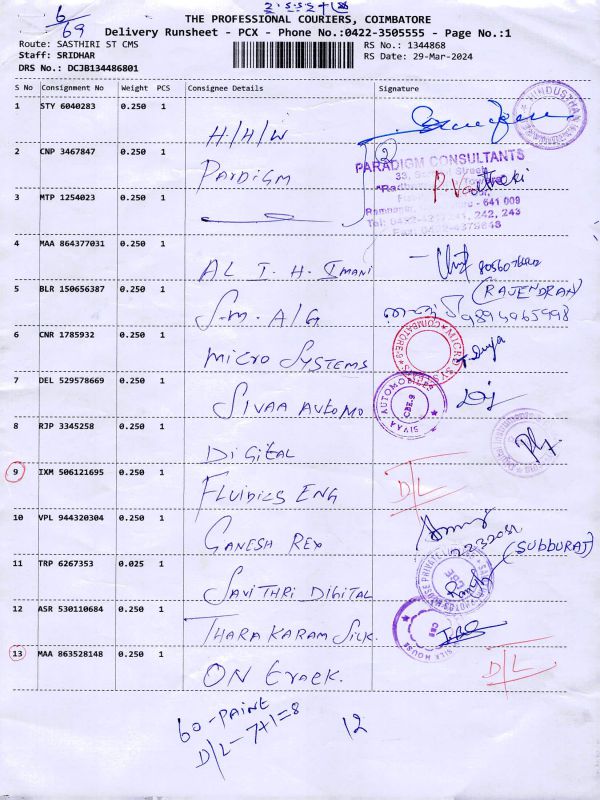 6/69
THE PROFESSIONAL COURIERS, COIMBATORE
Delivery Runsheet - PCX - Phone No.:0422-3505555 - Page No.:1
Route: SASTHIRI ST CMS
RS No.: 1344868
Staff: SRIDHAR
RS Date: 29-Mar-2024
DRS No.: DCJB134486801
S No Consignment No Weight PCS Consignee Details Signature
1 STY 6040283 0.250 1 H/H/W
2 CNP 3467847 0.250 1 Pardigm 2
PARADIGM CONSULTANTS
3 MTP 1254023 0.250 1
641 009
242, 243
4 MAA 864377031 0.250 1 AL T. H. Imani
5 BLR 150656387 0.250 1 S.M. A/G (RAJENDRAN)
6 CNR 1785932 0.250 1 Micro Systems
7 DEL 529578669 0.250 1 Sivaa Automo
SIVAA AUTOMOBILES CBE-9
8 RJP 3345258 0.250 1 Digital
9 IXM 506121695 0.250 1 Fluidics Eng D/L
10 VPL 944320304 0.250 1 Ganesh Rex
(SUBBURAJ)
11 TRP 6267353 0.025 1 Savithri Digital
12 ASR 530110684 0.250 1 Thara Karam Silk.
13 MAA 863528148 0.250 1 ON track. D/L
60-Paint
D/L-7+1=8
12